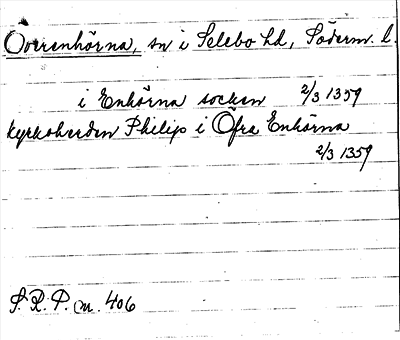 Överenhörna, sn i Selebo hd, Söderm. l.
i Enhörna socken 2/3 1359
kyrkoherden Philip i Öfra Enhörna
2/3 1359
S. R. P. nr. 406